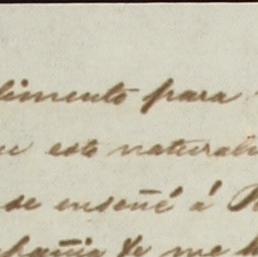 limento para
esto natural
se enseñé á
pañia de me